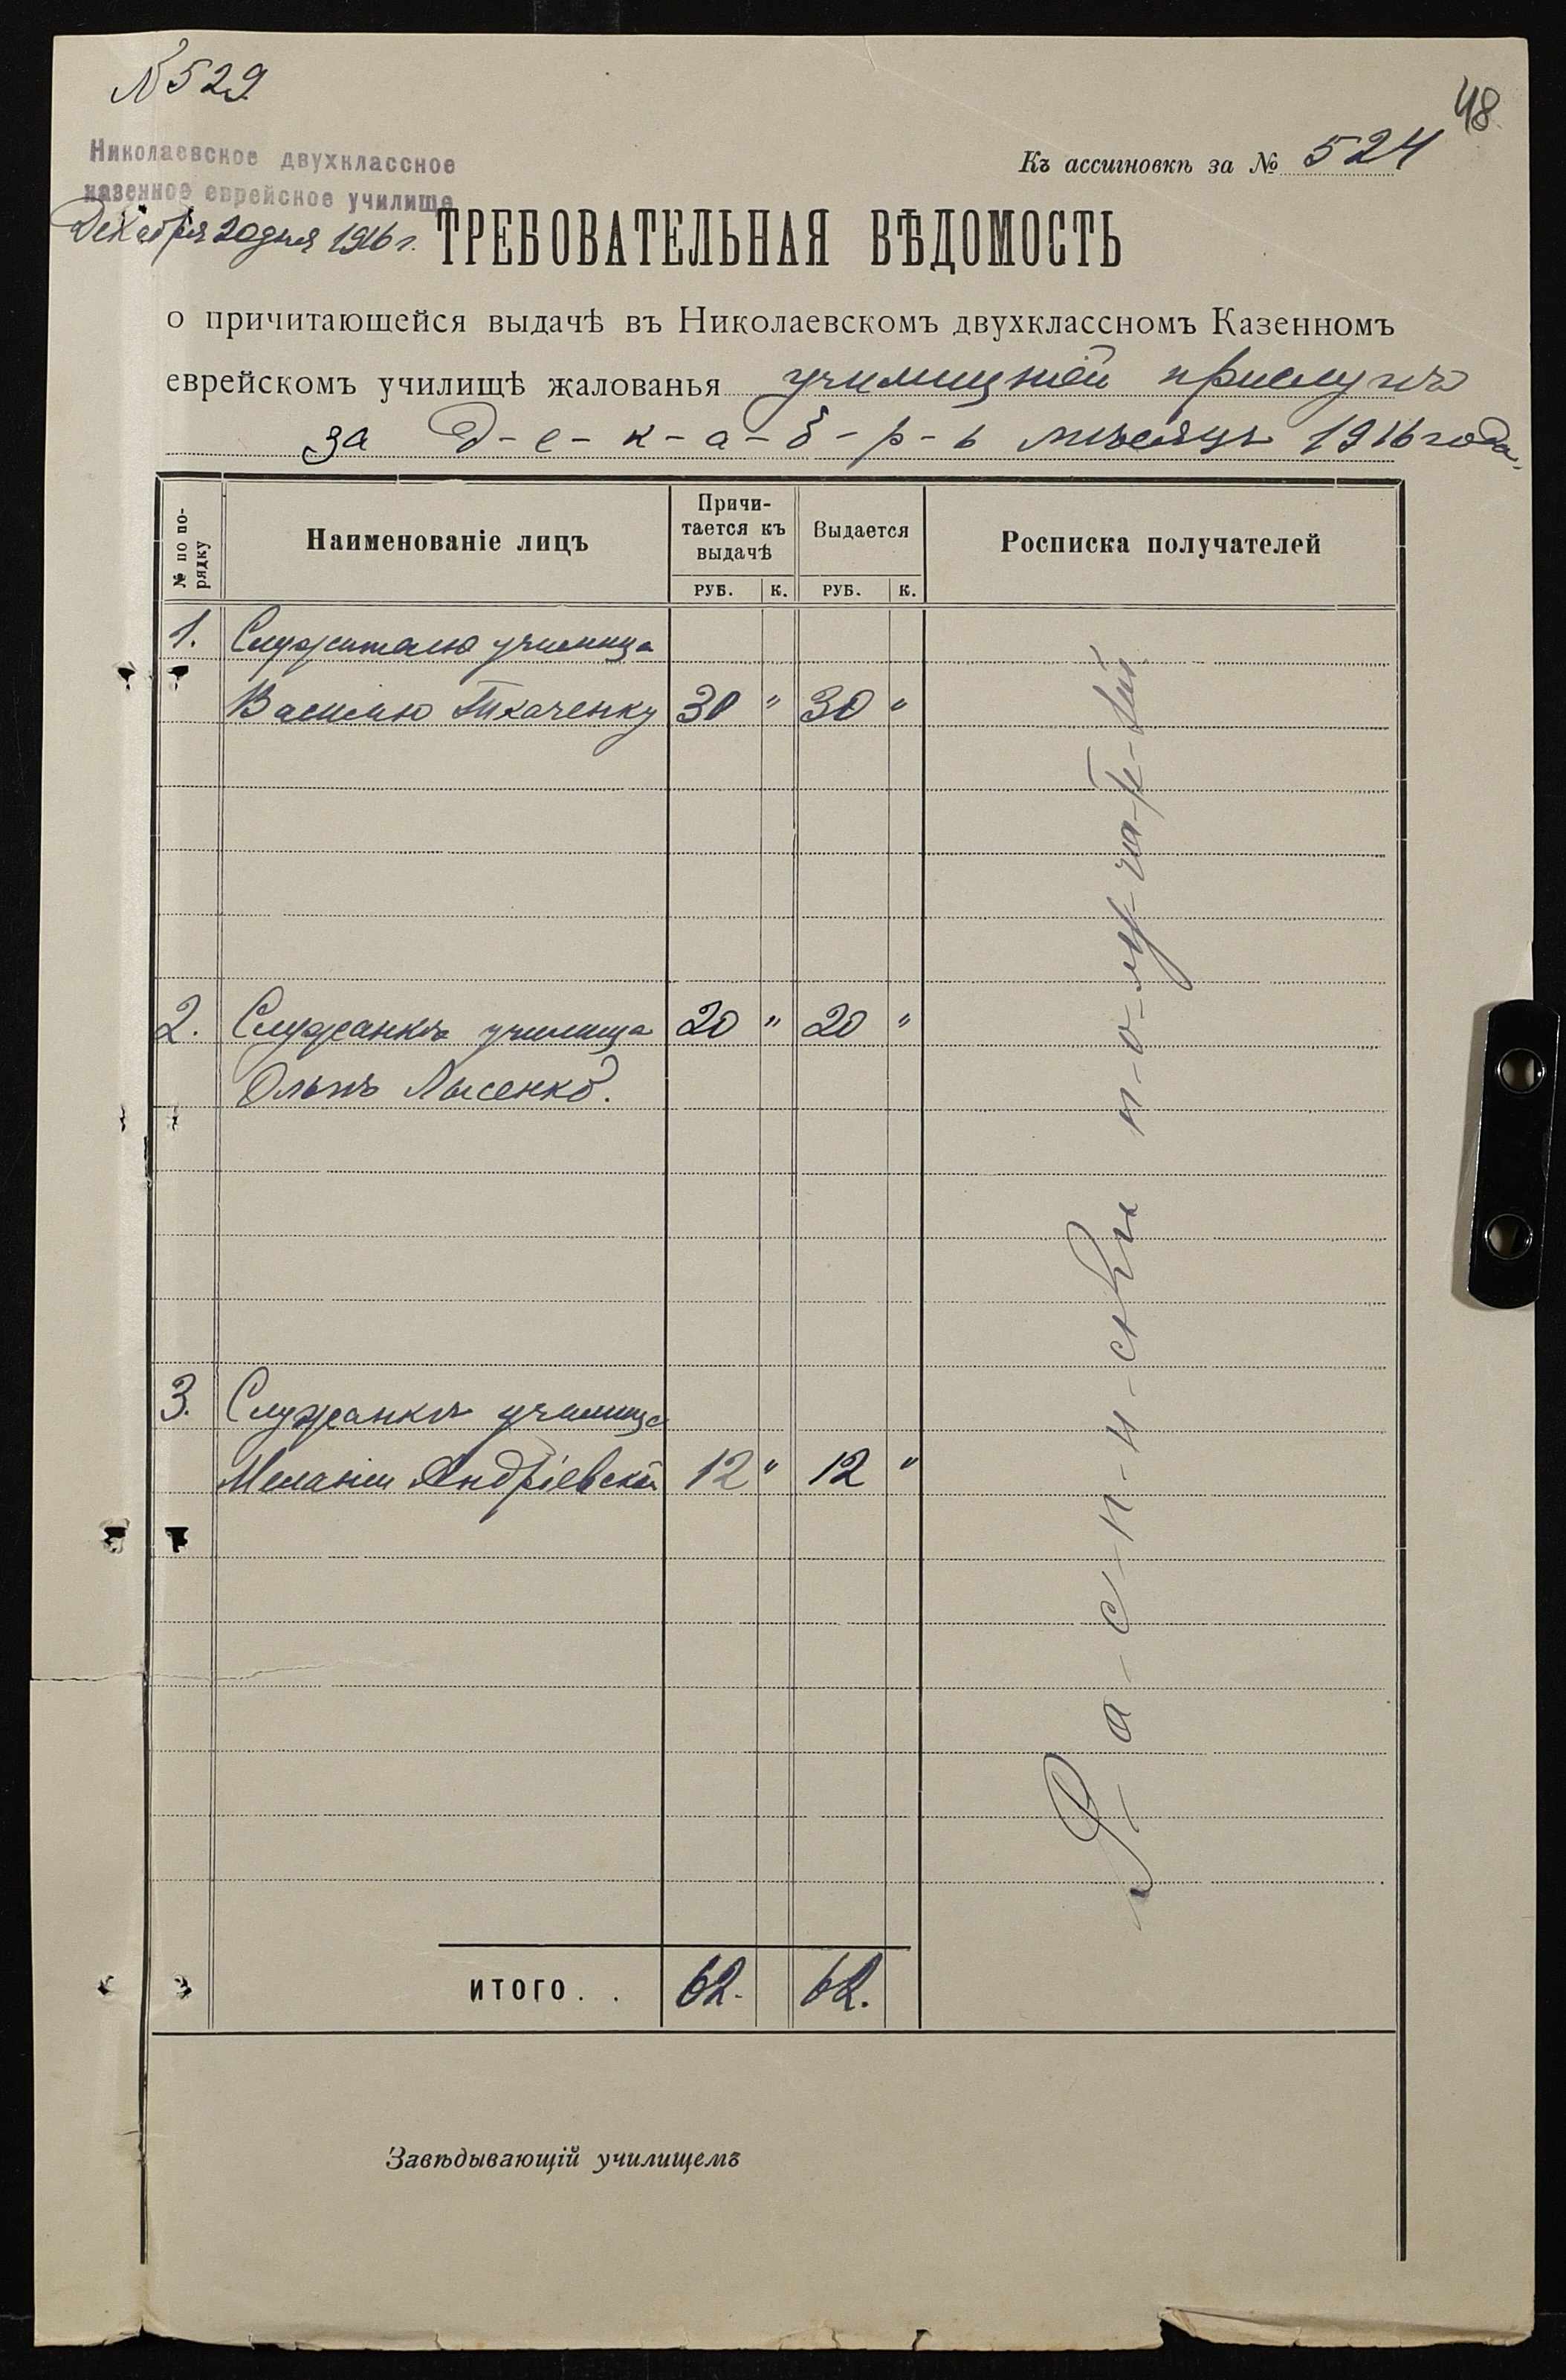 № 529
48
Николаевское двухклассное
казенное еврейское училище
Къ ассигновкѣ за № 524
Декабря 20 дня 1916 г.
ТРЕБОВАТЕЛЬНАЯ ВѢДОМОСТЬ
о причитающейся выдачѣ въ Николаевскомъ двухклассномъ Казенномъ
еврейскомъ училищѣ жалованья училищной прислугѣ
за д-е-к-а-б-р-ь мѣсяцъ 1916 года.
№ по по-
рядку
Наименованіе лицъ
Причи-
тается къ
выдачѣ
Выдается
Росписка получателей
РУБ. К. РУБ. К.
1. Служителю училища
Василію Ткаченку 30 " 30 "
2. Служанкѣ училища 20 " 20 "
Ольгѣ Лысенко.
3. Служанкѣ училища
Меланіи Андріевской 12 " 12 "
Р-а-с-п-и-с-ки п-о-лу-ча-те-лей
ИТОГО. . 62. 62.
Завѣдывающій училищемъ